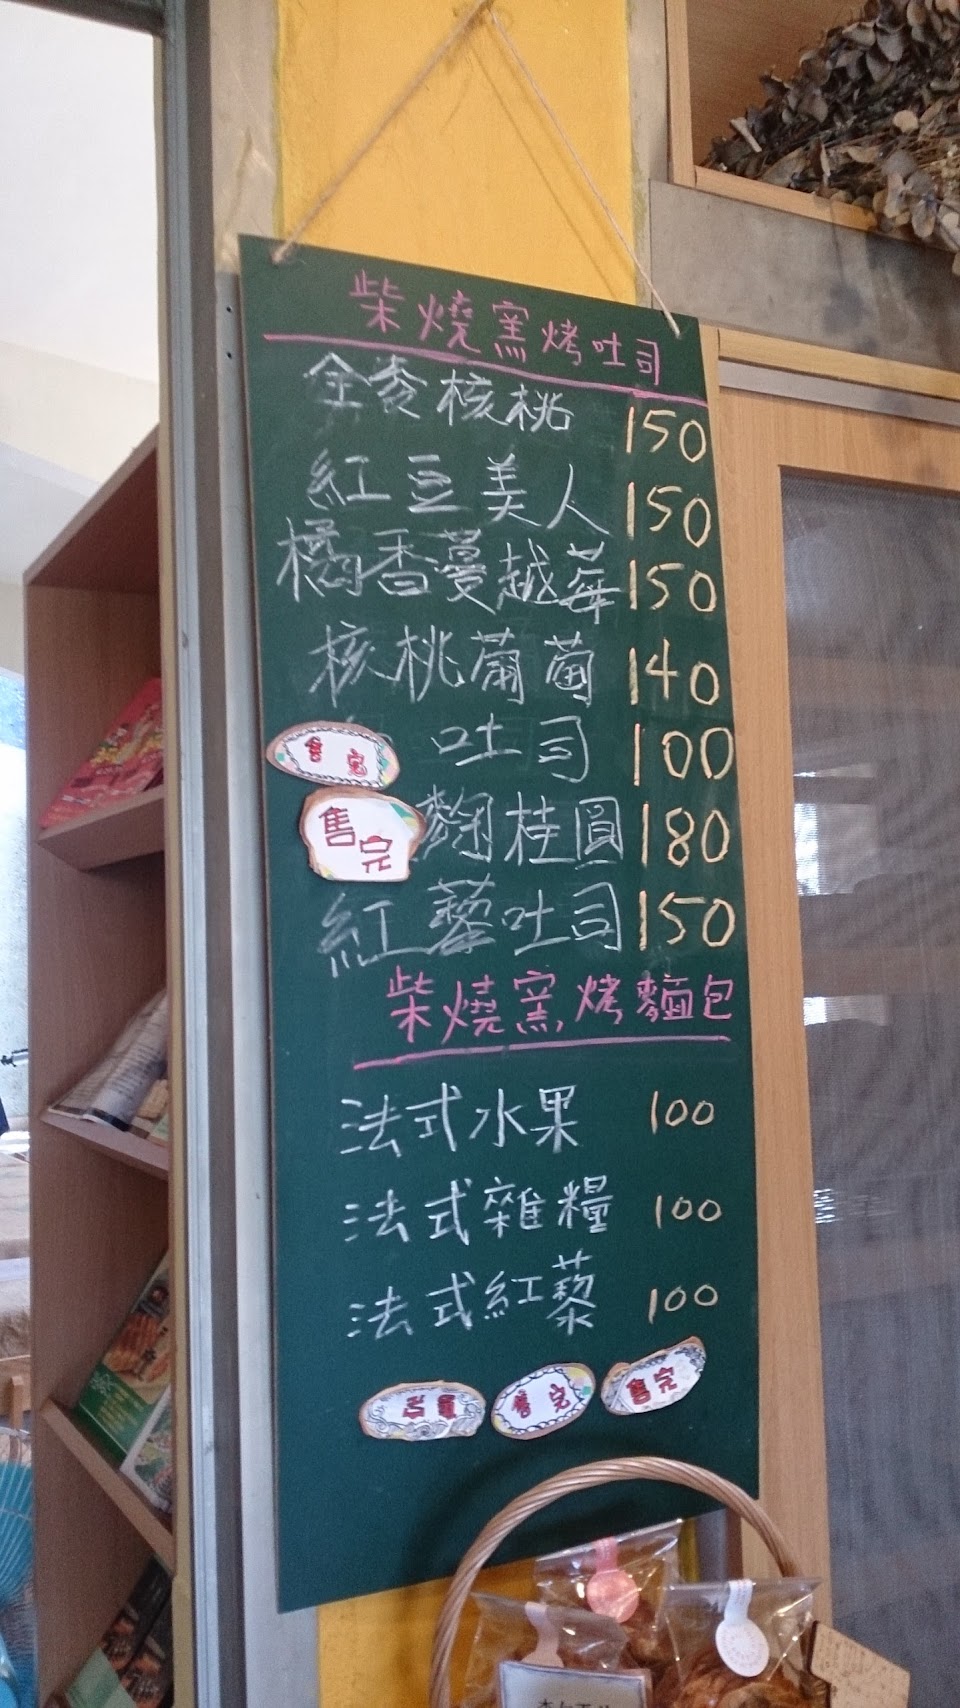 柴燒窯烤吐司
全麥核桃 150
紅豆美人 150
橘香蔓越莓 150
核桃葡萄 140
售完 吐司 100
售完 麴桂圓 180
紅藜吐司 150
柴燒窯烤麵包
法式水果 100
法式雜糧 100
法式紅藜 100
售完 售完